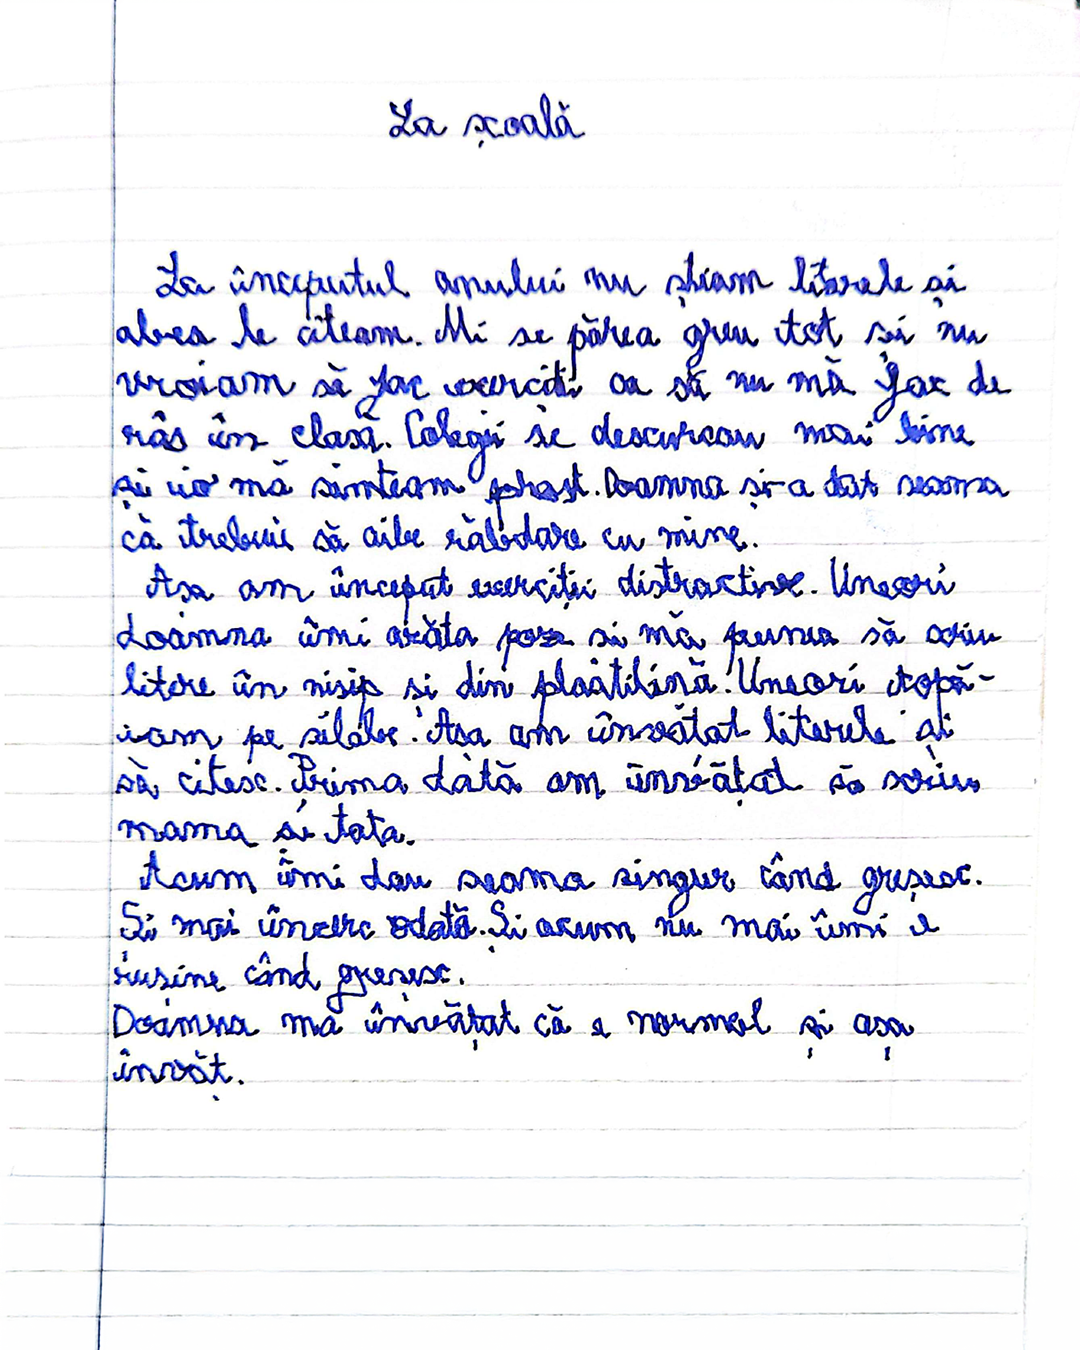 La școală
La începutul anului nu știam literele și
abea le citeam. Mi se părea greu tot și nu
vroiam să fac exerciți ca să nu mă fac de
râs în clasă. Colegii se descurcau mai bine
și io mă simteam prost. Doamna și-a dat seama
că trebuie să aibe răbdare cu mine.
Asa am început exerciții distractive. Uneori
doamna îmi arăta poze si mă punea să scriu
litere în nisip și din plastilină. Uneori țopă-
iam pe silabe. Asa am învățat literele și
să citesc. Prima dată am învățat să scriu
mama și tata.
Acum îmi dau seama singur când greșesc.
Si mai încerc odată. Și acum nu mai îmi e
rușine când greșesc.
Doamna mă învățat că e normal și așa
învăț.